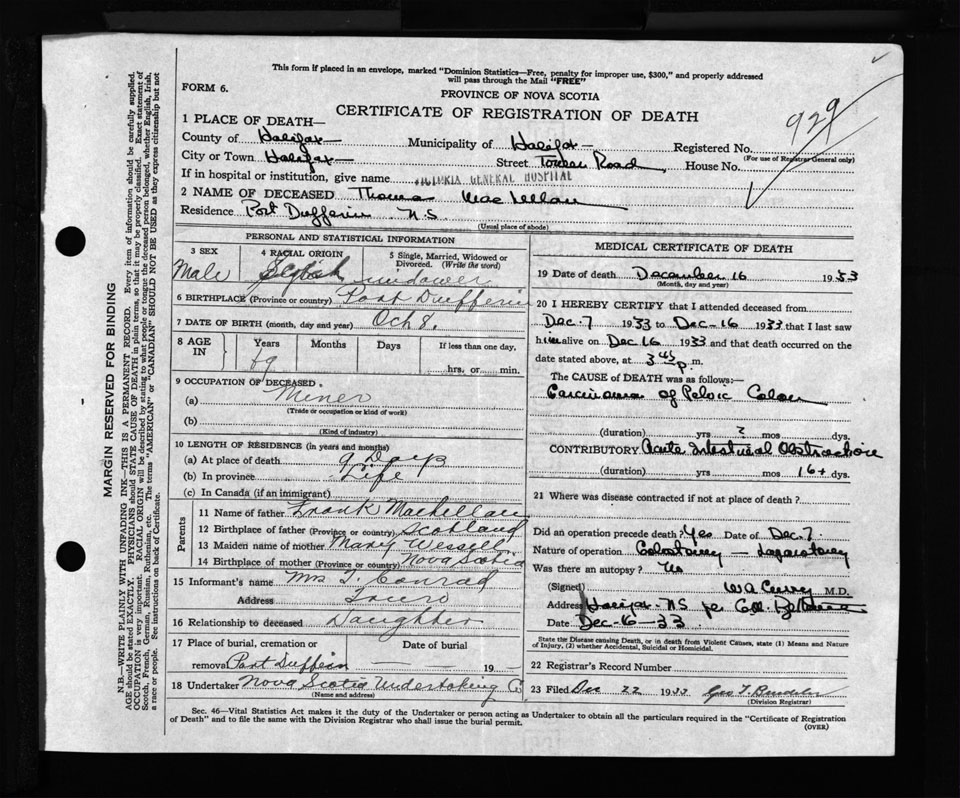 This form if placed in an envelope, marked "Dominion Statistics—Free, penalty for improper use, $300," and properly addressed
will pass through the Mail "FREE"
FORM 6.
PROVINCE OF NOVA SCOTIA
CERTIFICATE OF REGISTRATION OF DEATH
929
1 PLACE OF DEATH—
County of Halifax Municipality of Halifax Registered No.
(For use of Registrar General only)
City or Town Halifax Street Road House No.
If in hospital or institution, give name VICTORIA GENERAL HOSPITAL
2 NAME OF DECEASED Thomas MacLellan
Residence Port Dufferin N.S
(Usual place of abode)
PERSONAL AND STATISTICAL INFORMATION
3 SEX 4 RACIAL ORIGIN 5 Single, Married, Widowed or
Divorced. (Write the word)
Male widower
6 BIRTHPLACE (Province or country) Port Dufferin
7 DATE OF BIRTH (month, day and year) Oct 8.
8 AGE IN Years Months Days If less than one day,
69 hrs. or min.
9 OCCUPATION OF DECEASED.
(a) Miner
(Trade or occupation or kind of work)
(b)
(Kind of industry)
10 LENGTH OF RESIDENCE (in years and months)
(a) At place of death 9 Days
(b) In province Life
(c) In Canada (if an immigrant)
Parents
11 Name of father Frank MacLellan
12 Birthplace of father (Province or country) Scotland
13 Maiden name of mother Mary Wessell
14 Birthplace of mother (Province or country) Nova Scotia
15 Informant's name Mrs T. Conrad
Address Truro
16 Relationship to deceased Daughter
17 Place of burial, cremation or Date of burial
removal Port Dufferin — — 19
18 Undertaker Nova Scotia Undertaking Co
(Name and address)
MEDICAL CERTIFICATE OF DEATH
19 Date of death December 16 1933
(Month, day and year)
20 I HEREBY CERTIFY that I attended deceased from
Dec. 7 1933 to Dec-16 1933 that I last saw
him alive on Dec 16 1933 and that death occurred on the
date stated above, at 3 45 p. m.
The CAUSE of DEATH was as follows:—
Carcinoma of Pelvic Colon
(duration) yrs ? mos. dys.
CONTRIBUTORY Acute Intestinal Obstruction
(duration) yrs mos. 16+ dys.
21 Where was disease contracted if not at place of death?
Did an operation precede death? Yes Date of Dec. 7
Nature of operation Colostomy — Laparotomy
Was there an autopsy? No
(Signed) W A Curry M.D.
Address Halifax N.S per
Date Dec-16-33
State the Disease causing Death, or in death from Violent Causes, state (1) Means and Nature
of Injury, (2) whether Accidental, Suicidal or Homicidal.
22 Registrar's Record Number
23 Filed Dec 22 1933 Geo T
(Division Registrar)
Sec. 46—Vital Statistics Act makes it the duty of the Undertaker or person acting as Undertaker to obtain all the particulars required in the "Certificate of Registration
of Death" and to file the same with the Division Registrar who shall issue the burial permit.
(OVER)
MARGIN RESERVED FOR BINDING
N.B.—WRITE PLAINLY WITH UNFADING INK—THIS IS A PERMANENT RECORD. Every item of information should be carefully supplied.
AGE should be stated EXACTLY. PHYSICIANS should STATE CAUSE OF DEATH in plain terms, so that it may be properly classified. Exact statement of
OCCUPATION is very important. RACIAL ORIGIN will be described by stating to what people or tongue the deceased person belonged, whether English, Irish,
Scotch, French, German, Russian, Ruthenian, etc. The terms "AMERICAN" or "CANADIAN" SHOULD NOT BE USED as they express citizenship but not
a race or people. See instructions on back of Certificate.